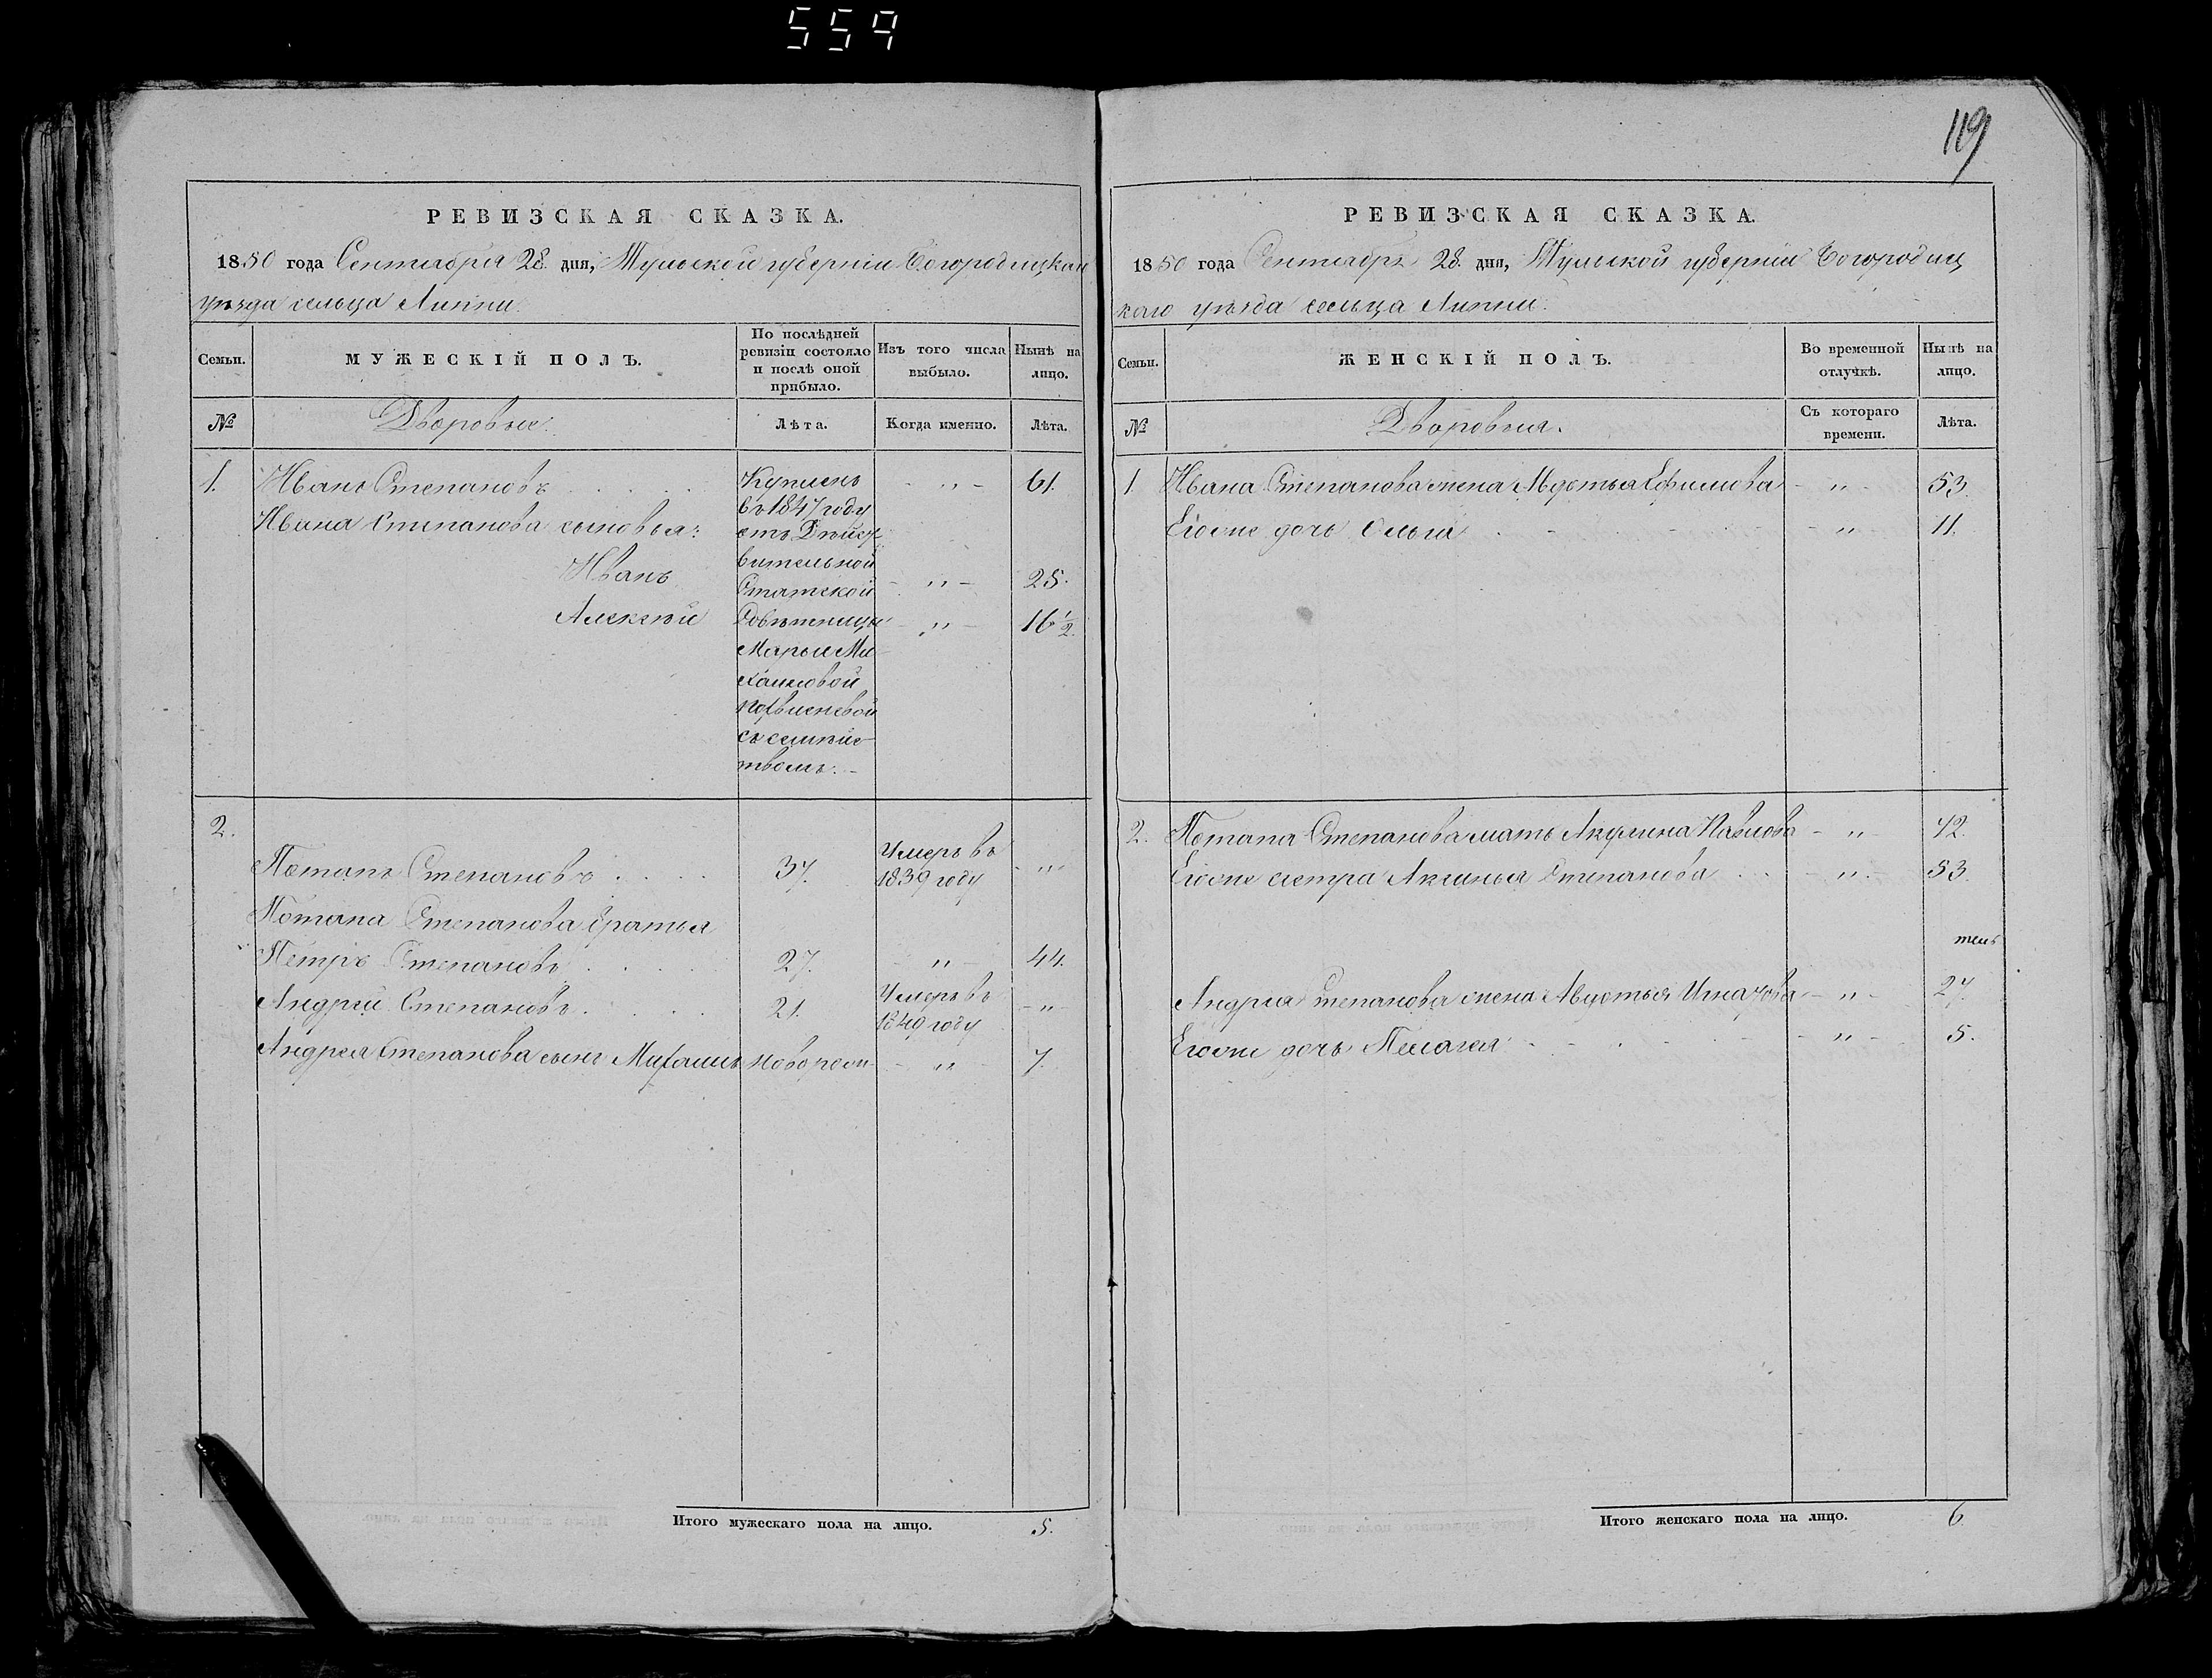 559
119
РЕВИЗСКАЯ СКАЗКА.
1850 года Сентября 28 дня, Тульской губерніи Богородицкаго
уѣзда сельца Липки
Семьи.
МУЖЕСКІЙ ПОЛЪ.
По послѣдней
ревизіи состояло
и послѣ оной
прибыло.
Изъ того числа
выбыло.
Нынѣ на
лицо.
№
Дворовые
Лѣта.
Когда именно.
Лѣта.
1. Иванъ Степановъ - „ - 61.
Ивана Степанова сыновья:
Иванъ - „ - 25.
Алексѣй - „ - 16 1/2
Купленъ
въ 1847 году
отъ Дѣйст
вительной
Статской
Совѣтницы
Марьи Ми
хайловой
съ семѣйс
твомъ. -
2.
Потапъ Степановъ . . . . 37. Умеръ въ
1839 году - „
Потапа Степанова братья
Петръ Степановъ . . . . 27. - „ - 44.
Андрей Степановъ . . . . 21. Умеръ въ
1849 году - „
Андрея Степанова сынъ Михаилъ новорож - „ 7.
Итого мужескаго пола на лицо. 5.
РЕВИЗСКАЯ СКАЗКА.
1850 года Сентября 28 дня, Тульской губерніи Богородиц
каго уѣзда сельца Липки
Семьи.
ЖЕНСКІЙ ПОЛЪ.
Во временной
отлучкѣ.
Нынѣ на
лицо.
№
Дворовыя.
Съ котораго
времени.
Лѣта.
1. Ивана Степанова жена Авдотья Ефимова - „ - 53.
Егоже дочь Ольга - „ 11.
2. Потапа Степанова мать Акулина Павлова - „ - 72.
Егоже сестра Аксинья Степанова . . - „ - 53.
Андрея Степанова жена Авдотья - „ - 27.
Егоже дочь Пелагея - „ - 5.
Итого женскаго пола на лицо. 6